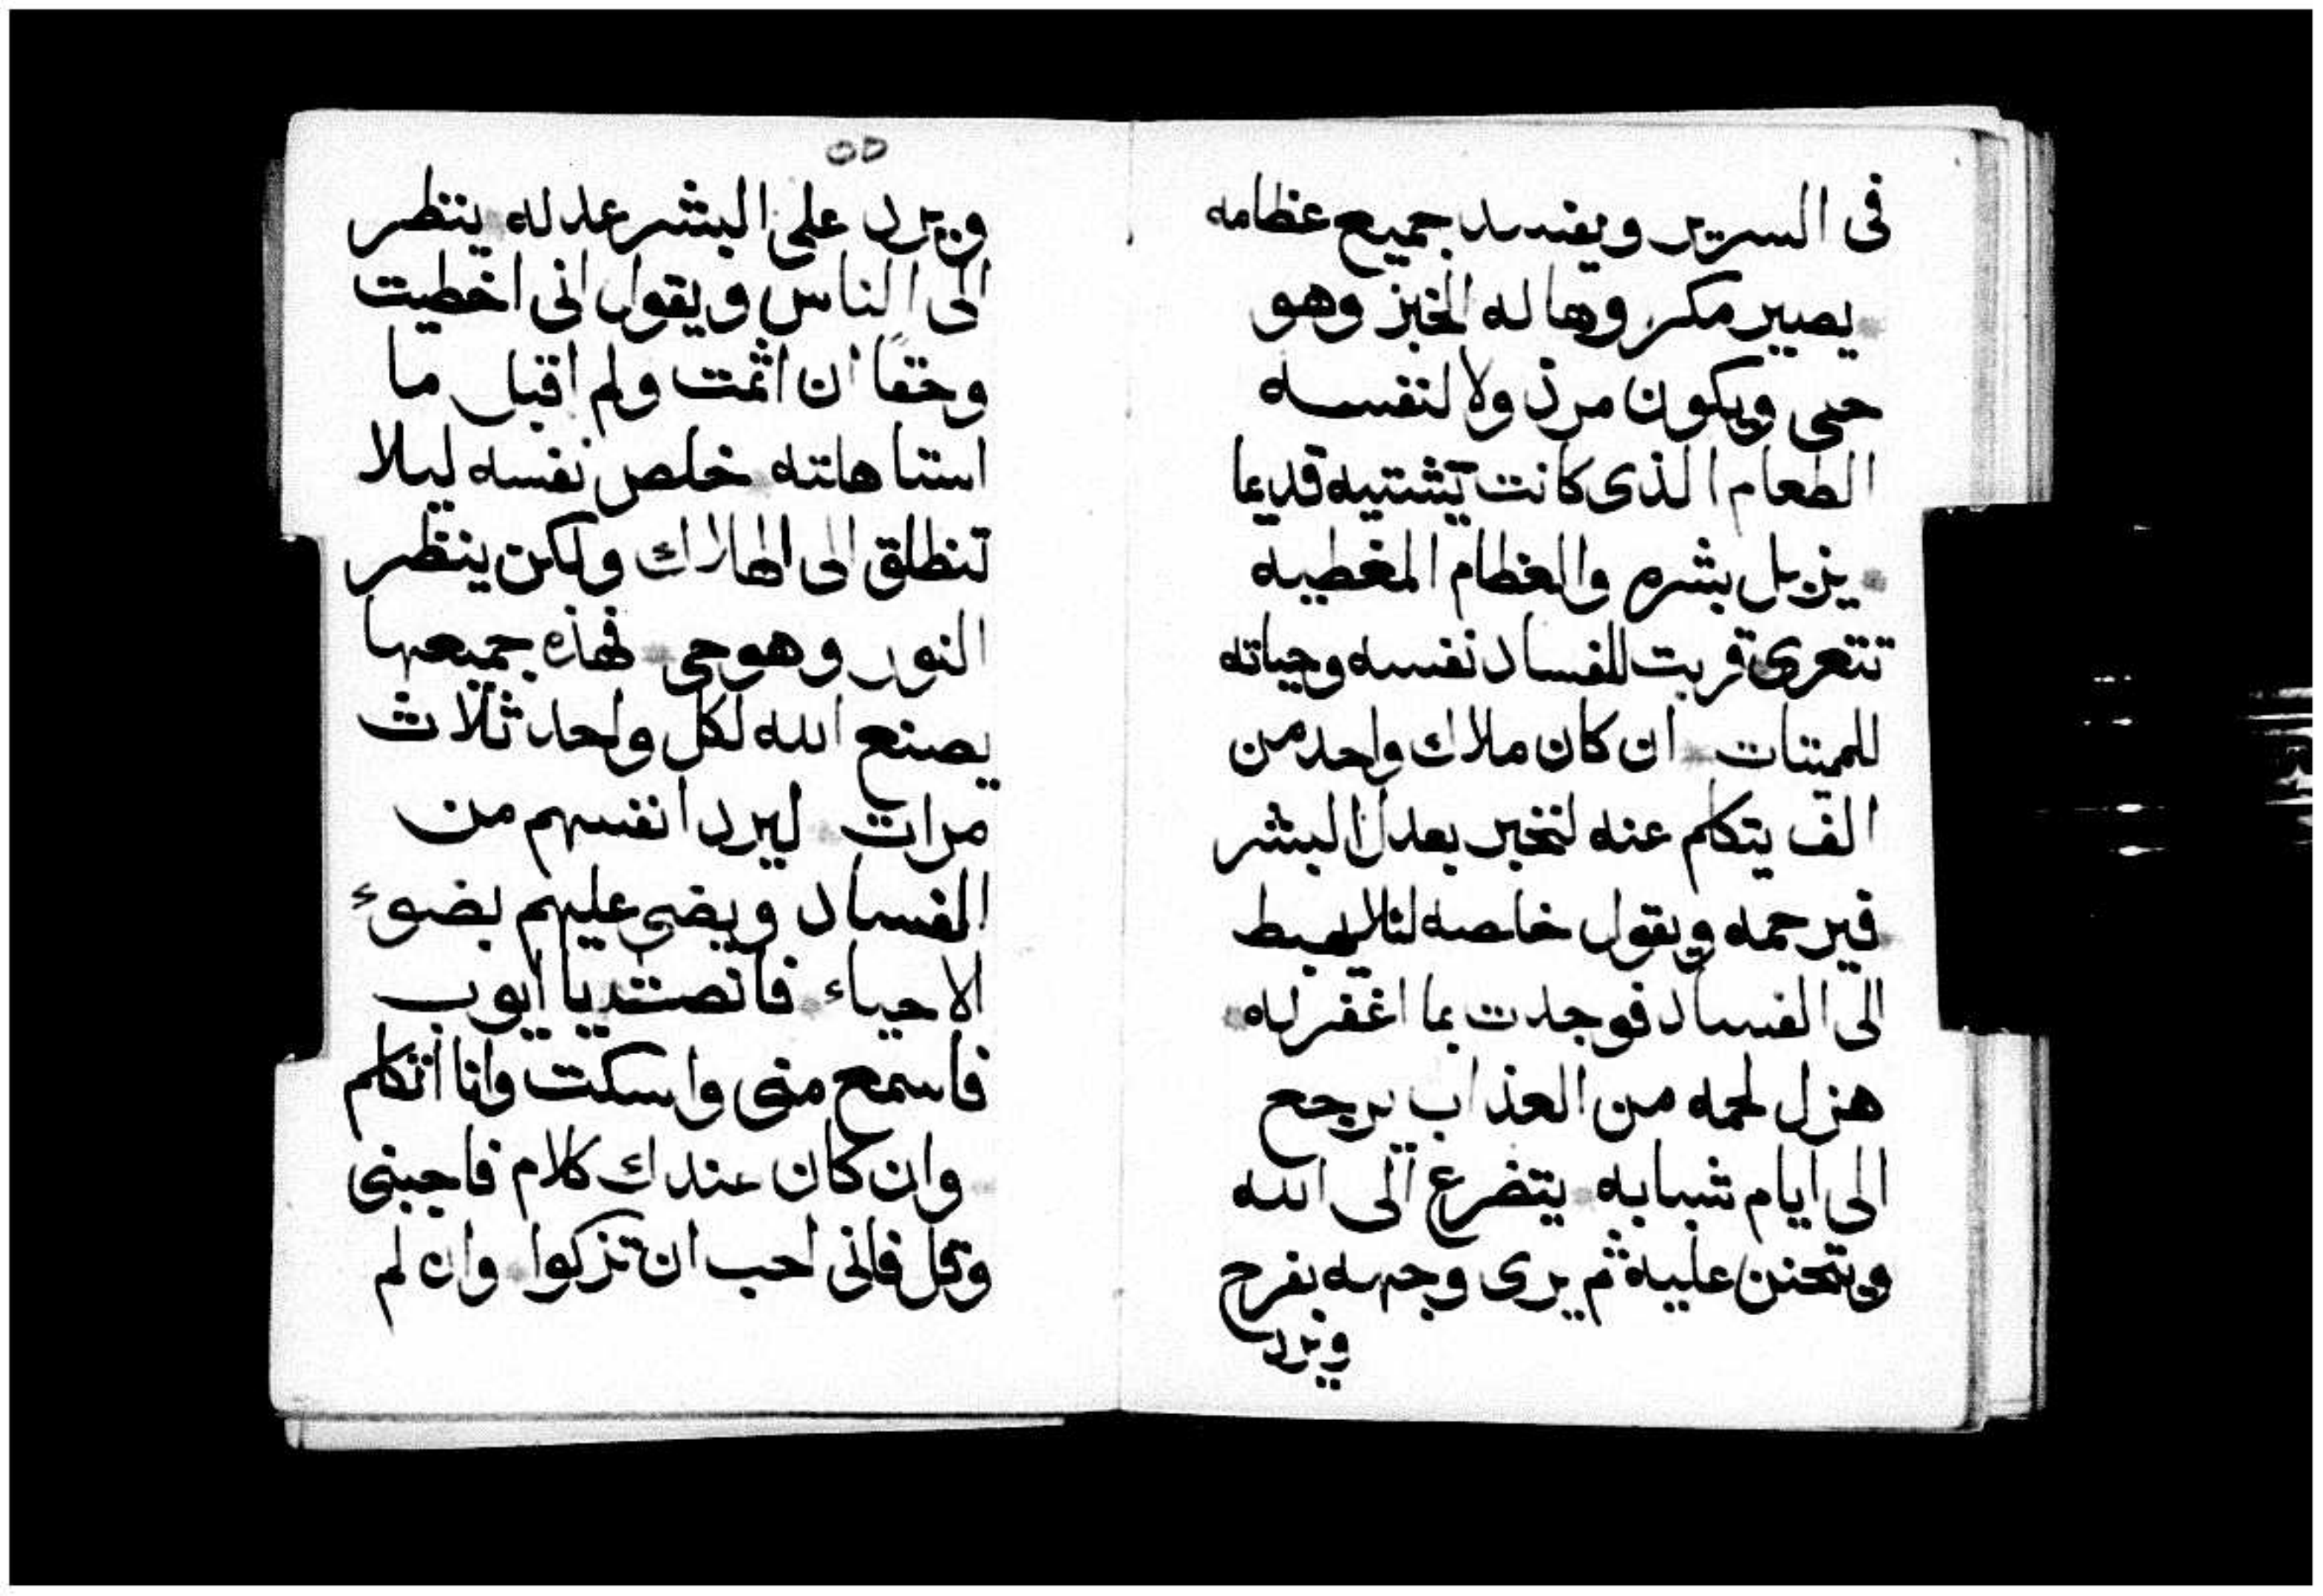 فى السرير ويفسد جميع عظامه
يصير مكروها له الخبز وهو
حى ويكون مرذولا لنفسه
الطعام الذى كانت تشتيه قديما
يزبل بشره والعظام المغطيه
تتعرى قربت للفساد نفسه وحياته
للميتات ان كان ملاك واحد من
الف يتكلم عنه لنخبر بعدل البشر
فيرحمه ويقول خلصه لئلا يهبط
الى الفساد فوجدت بما اغفر له
هزل لحمه من العذاب يرجع
الى ايام شبابه يتضرع الى الله
ويتحنن عليه ثم يرى وجهه بفرح
ويرد
٥٥
ويرد على البشر عدله ينظر
الى الناس ويقول انى اخطيت
وحقا ان اثمت ولم اقبل ما
استاهلته خلص نفسه ليلا
تنطلق الى الهلاك ولكن ينظر
النور وهو حى فهذه جميعها
يصنع الله لكل واحد ثلاث
مرات ليرد انفسهم من
الفساد ويضى عليهم بضوء
الاحياء فانصت يا ايوب
فاسمع منى واسكت وانا اتكلم
وان كان عندك كلام فاجبنى
وتكل فانى احب ان تزكوا وان لم